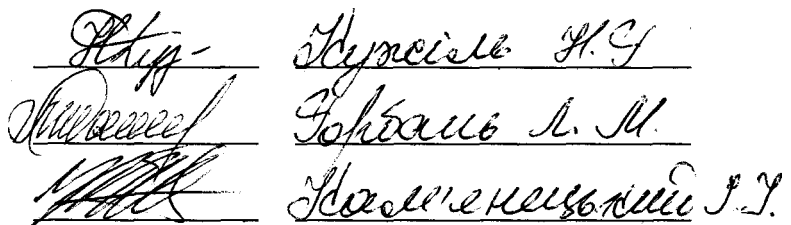 Кужіль Н. Я
Горбань Л. М.
Кам'янецький І. І.